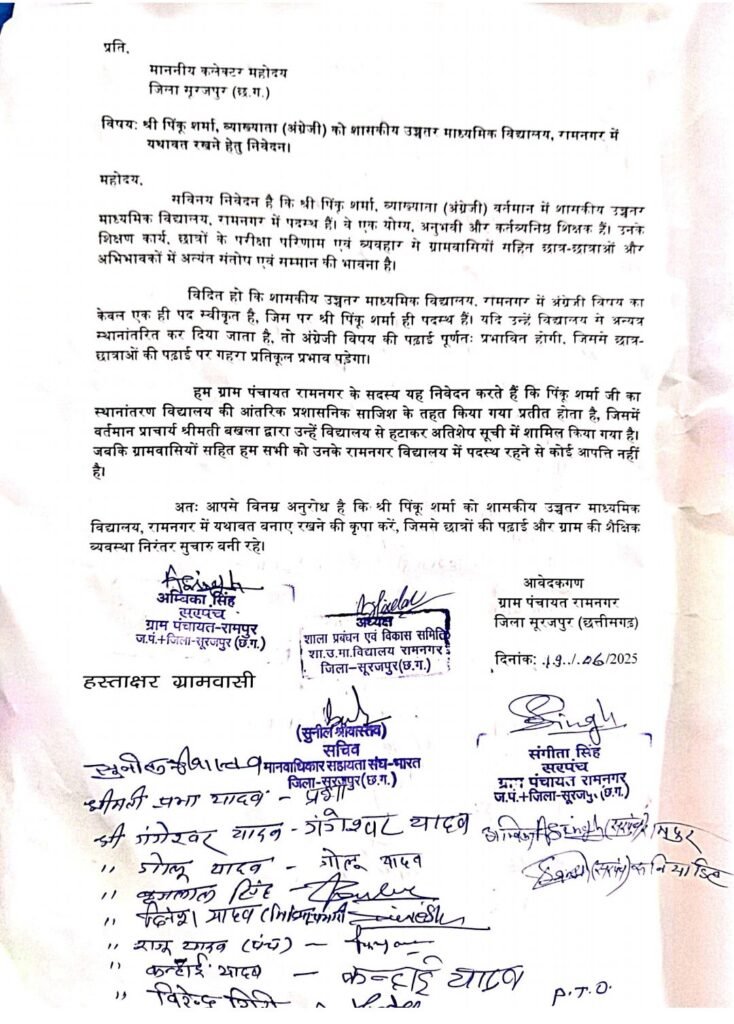 प्रति,
माननीय कलेक्टर महोदय
जिला सूरजपुर (छ.ग.)
विषय: श्री पिंकू शर्मा, व्याख्याता (अंग्रेजी) को शासकीय उच्चतर माध्यमिक विद्यालय, रामनगर में
यथावत रखने हेतु निवेदन।
महोदय,
सविनय निवेदन है कि श्री पिंकू शर्मा, व्याख्याता (अंग्रेजी) वर्तमान में शासकीय उच्चतर
माध्यमिक विद्यालय, रामनगर में पदस्थ हैं। वे एक योग्य, अनुभवी और कर्तव्यनिष्ठ शिक्षक हैं। उनके
शिक्षण कार्य, छात्रों के परीक्षा परिणाम एवं व्यवहार से ग्रामवासियों सहित छात्र-छात्राओं और
अभिभावकों में अत्यंत संतोष एवं सम्मान की भावना है।
विदित हो कि शासकीय उच्चतर माध्यमिक विद्यालय, रामनगर में अंग्रेजी विषय का
केवल एक ही पद स्वीकृत है, जिस पर श्री पिंकू शर्मा ही पदस्थ हैं। यदि उन्हें विद्यालय से अन्यत्र
स्थानांतरित कर दिया जाता है, तो अंग्रेजी विषय की पढ़ाई पूर्णतः प्रभावित होगी, जिससे छात्र-
छात्राओं की पढ़ाई पर गहरा प्रतिकूल प्रभाव पड़ेगा।
हम ग्राम पंचायत रामनगर के सदस्य यह निवेदन करते हैं कि पिंकू शर्मा जी का
स्थानांतरण विद्यालय की आंतरिक प्रशासनिक साजिश के तहत किया गया प्रतीत होता है, जिसमें
वर्तमान प्राचार्य श्रीमती बखला द्वारा उन्हें विद्यालय से हटाकर अतिशेष सूची में शामिल किया गया है।
जबकि ग्रामवासियों सहित हम सभी को उनके रामनगर विद्यालय में पदस्थ रहने से कोई आपत्ति नहीं
है।
अतः आपसे विनम्र अनुरोध है कि श्री पिंकू शर्मा को शासकीय उच्चतर माध्यमिक
विद्यालय, रामनगर में यथावत बनाए रखने की कृपा करें, जिससे छात्रों की पढ़ाई और ग्राम की शैक्षिक
व्यवस्था निरंतर सुचारु बनी रहे।
आवेदकगण
ग्राम पंचायत रामनगर
जिला सूरजपुर (छत्तीसगढ़)
दिनांक: 19/06/2025
ASingh
अम्बिका सिंह
सरपंच
ग्राम पंचायत-रामपुर
ज.पं.+जिला-सूरजपुर (छ.ग.)
अध्यक्ष
शाला प्रबंधन एवं विकास समिति
शा.उ.मा.विद्यालय रामनगर
जिला-सूरजपुर(छ.ग.)
हस्ताक्षर ग्रामवासी
(सुनील श्रीवास्तव)
सचिव
मानवाधिकार सहायता संघ-भारत
जिला-सूरजपुर(छ.ग.)
Singh
संगीता सिंह
सरपंच
ग्राम पंचायत रामनगर
ज.पं.+जिला-सूरजपुर (छ.ग.)
श्रीमती प्रभा यादव - प्रभा
श्री गंगेश्वर यादव - गंगेश्वर यादव
ASingh (सरपंच)
(सरपंच)
" गोलू यादव - गोलू यादव
" बृजलाल सिंह
" दिनेश यादव
" राजू यादव (पंच) -
" कन्हाई यादव - कन्हाई यादव
" विरेन्द्र गिरि
P.T.O.